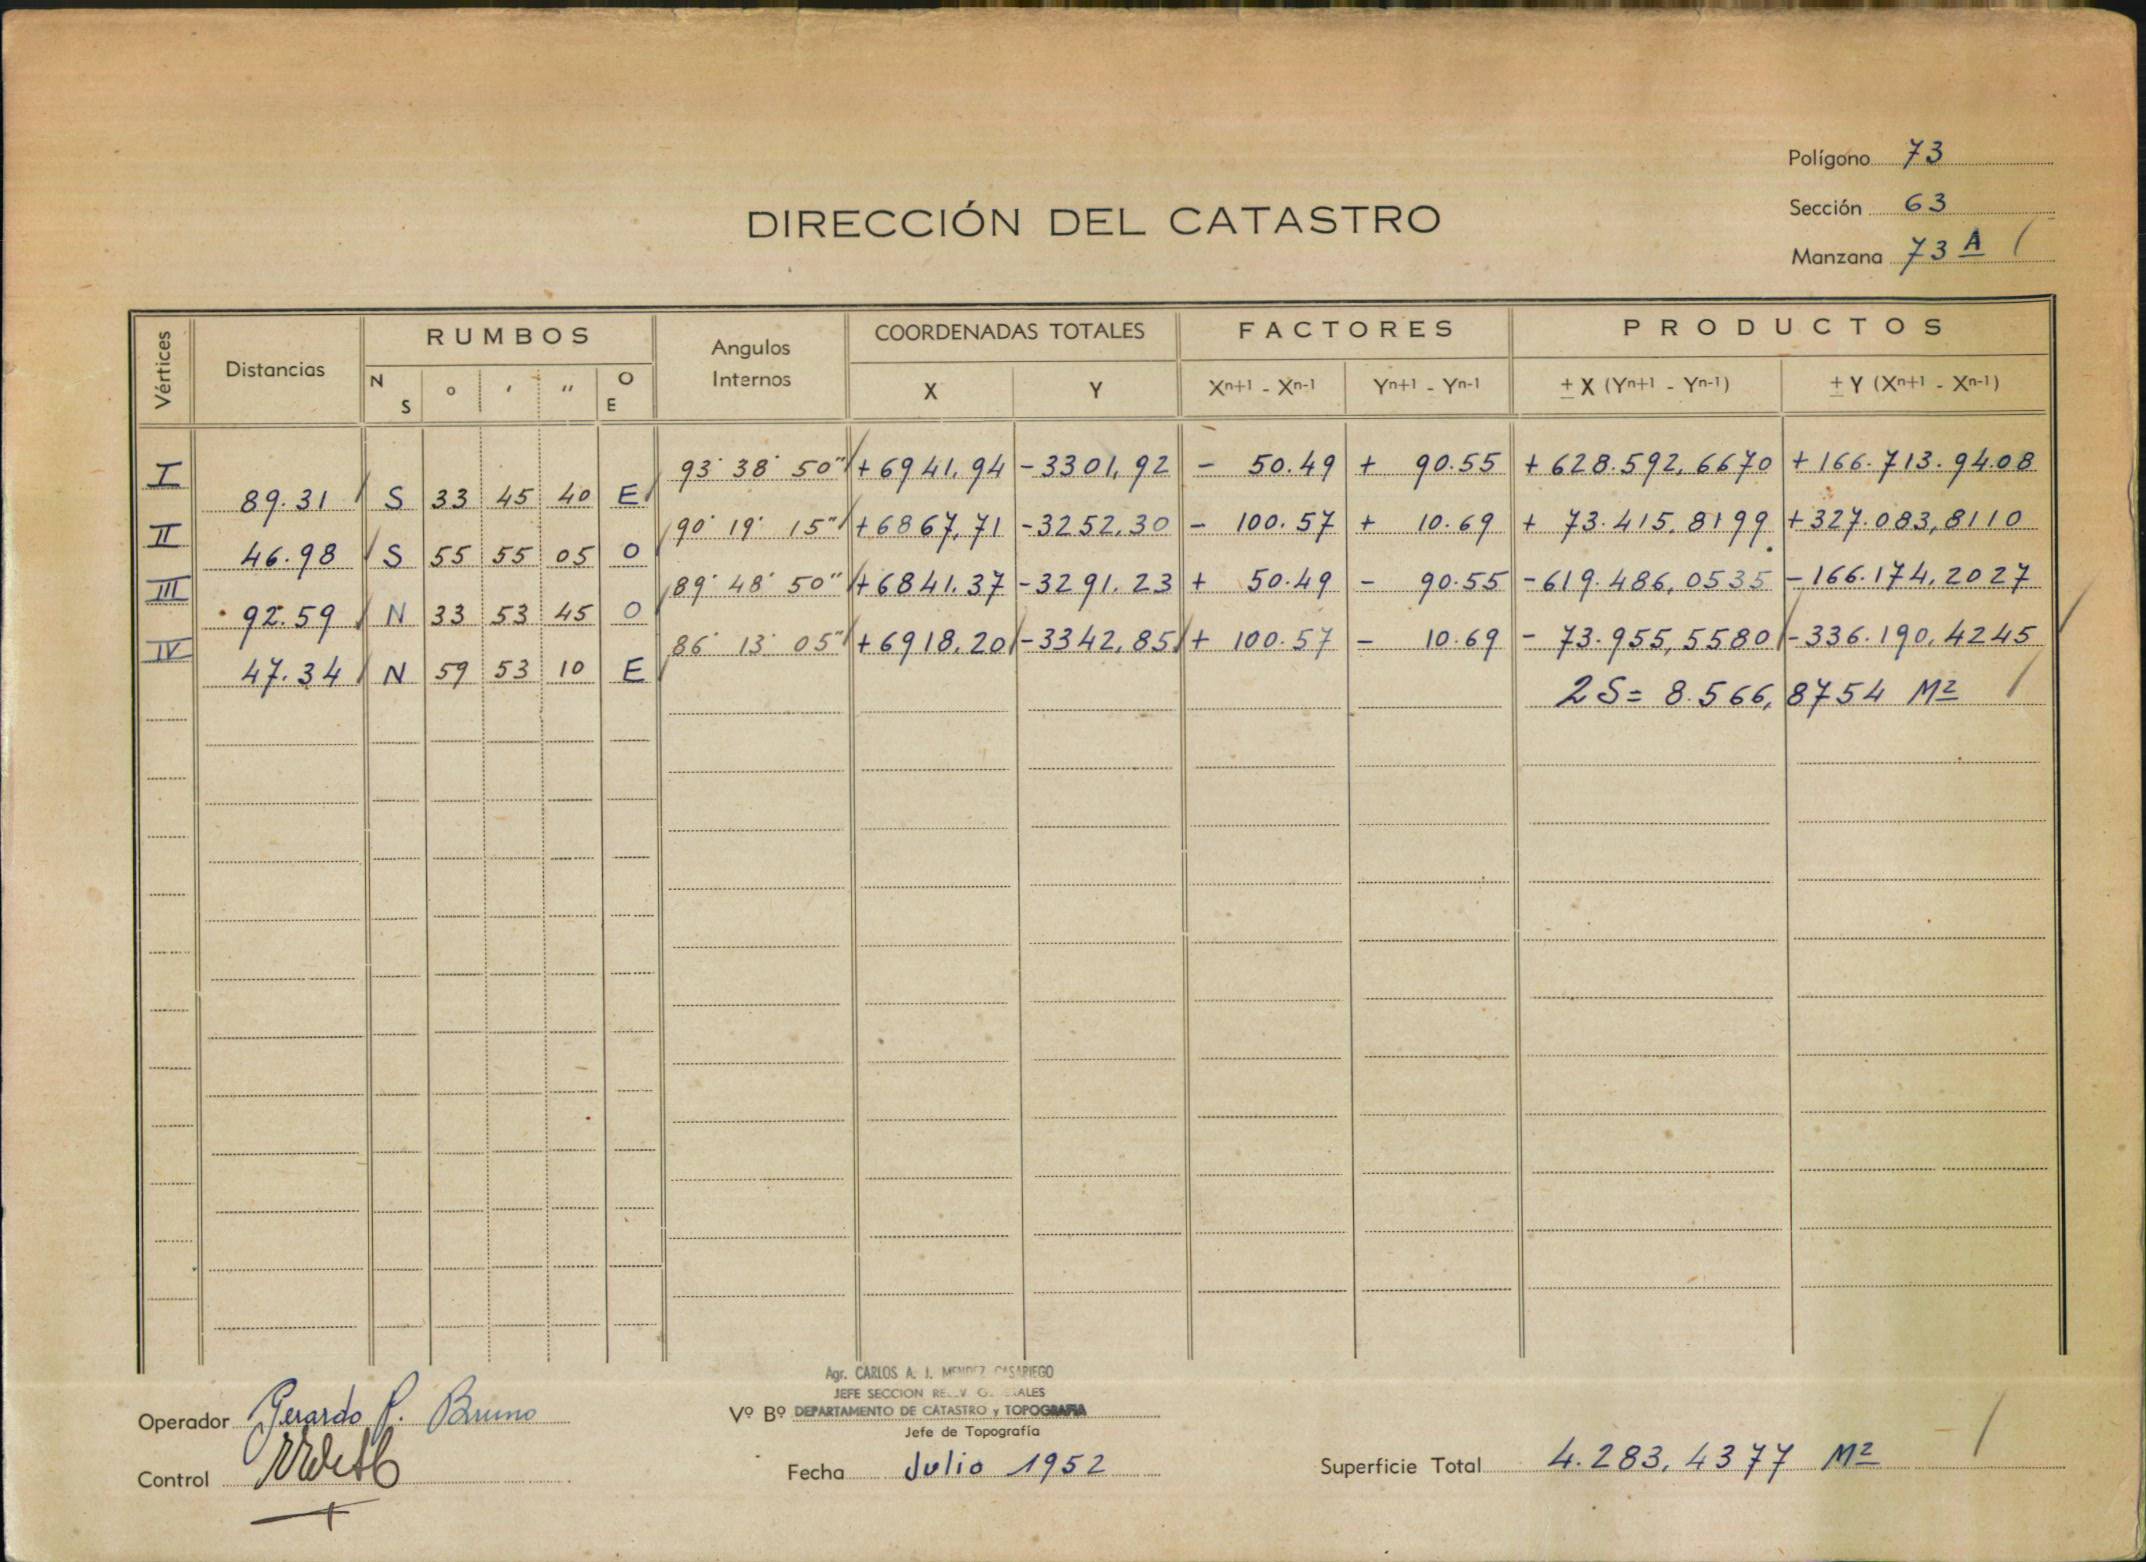 Polígono 73
Sección 63
DIRECCIÓN DEL CATASTRO
Manzana 73 A
Vértices Distancias RUMBOS Angulos Internos COORDENADAS TOTALES FACTORES PRODUCTOS
N S ° ' " O E X Y Xn+1 - Xn-1 Yn+1 - Yn-1 ± X (Yn+1 - Yn-1) ± Y (Xn+1 - Xn-1)
I 93° 38' 50" +6941,94 -3301,92 - 50.49 + 90.55 +628.592,6670 +166.713.9408
89.31 S 33 45 40 E
II 90° 19' 15" +6867,71 -3252,30 - 100.57 + 10.69 + 73.415,8199 +327.083,8110
46.98 S 55 55 05 O
III 89° 48' 50" +6841.37 -3291.23 + 50.49 - 90.55 -619.486,0535 -166.174,2027
92.59 N 33 53 45 O
IV 86° 13' 05" +6918,20 -3342,85 + 100.57 - 10.69 - 73.955,5580 -336.190,4245
47.34 N 59 53 10 E
2S= 8.566,8754 M2
Agr. CARLOS A. J. MENDEZ CASARIEGO
JEFE SECCION
Operador Gerardo P. Bruno
Vº Bº DEPARTAMENTO DE CATASTRO y TOPOGRAFIA
Jefe de Topografía
Control
Fecha Julio 1952
Superficie Total 4.283,4377 M2